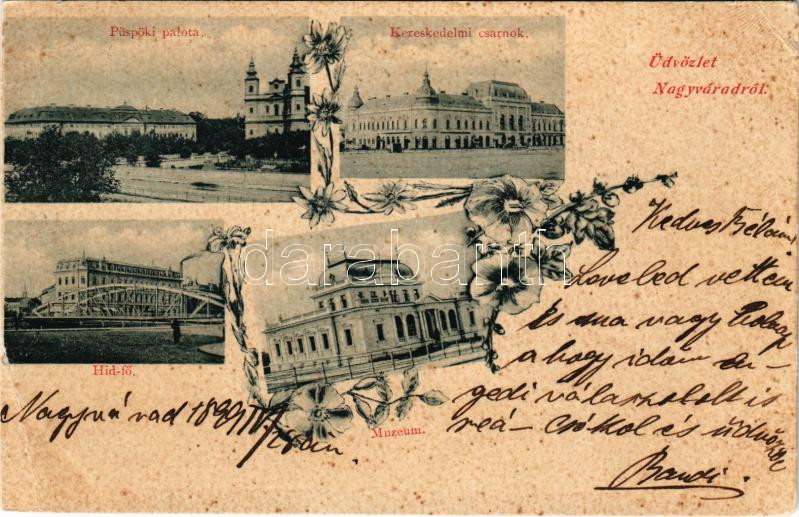 Püspöki palota.
Kereskedelmi csarnok.
Üdvözlet
Nagyváradról.
darabanth
Hid-fő.
Muzeum.
Kedves Bélám!
Leveled vettem
és ma vagy holnap
a hogy időm en-
gedi válaszolok is
reá- csókol és üdvözöl
Bandi.
Nagyvárad 1899